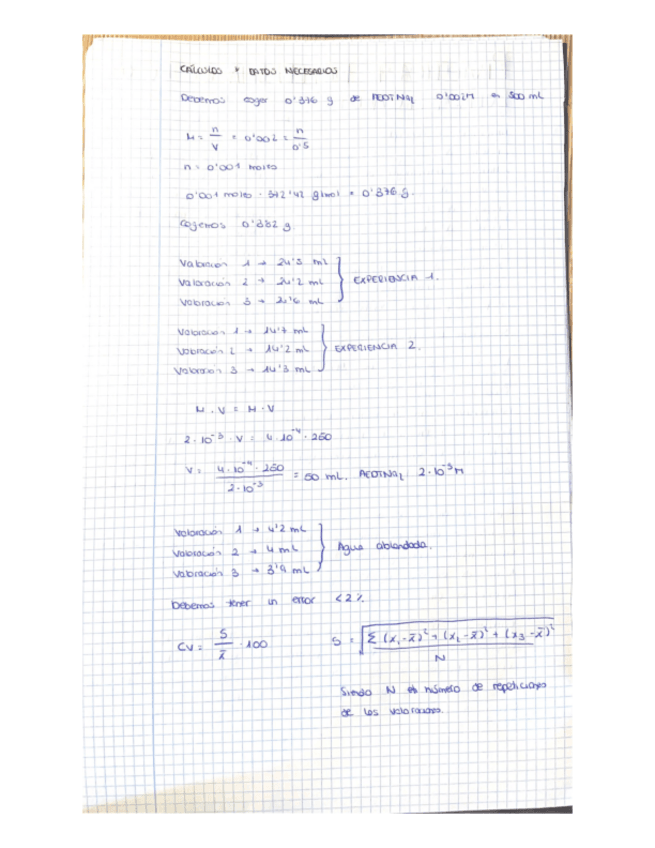 CÁLCULOS Y DATOS NECESARIOS
Debemos coger 0'376 g de AEDTNa2 0'002M en 500 mL
M = n/V = 0'002 = n/0'5
n = 0'001 moles
0'001 moles · 372'42 g/mol = 0'376 g.
Cogemos 0'382 g
Valoración 1 → 24'3 mL
Valoración 2 → 24'2 mL } EXPERIENCIA 1.
Valoración 3 → mL
Valoración 1 → 14'7 mL
Valoración 2 → 14'2 mL } EXPERIENCIA 2.
Valoración 3 → 14'3 mL
M · V = M · V
2·10⁻³ · V = 4·10⁻⁴ · 250
V = 4·10⁻⁴ · 250 / 2·10⁻³ = 50 mL. AEDTNa2 2·10⁻³M
Valoración 1 → 4'2 mL
Valoración 2 → 4 mL } Agua ablandada.
Valoración 3 → 3'9 mL
Debemos tener un error <2%
CV = S/x̄ · 100
S = √(Σ (x₁-x̄)² + (x₂-x̄)² + (x₃-x̄)² / N)
Siendo N número de repeticiones
de las valoraciones.